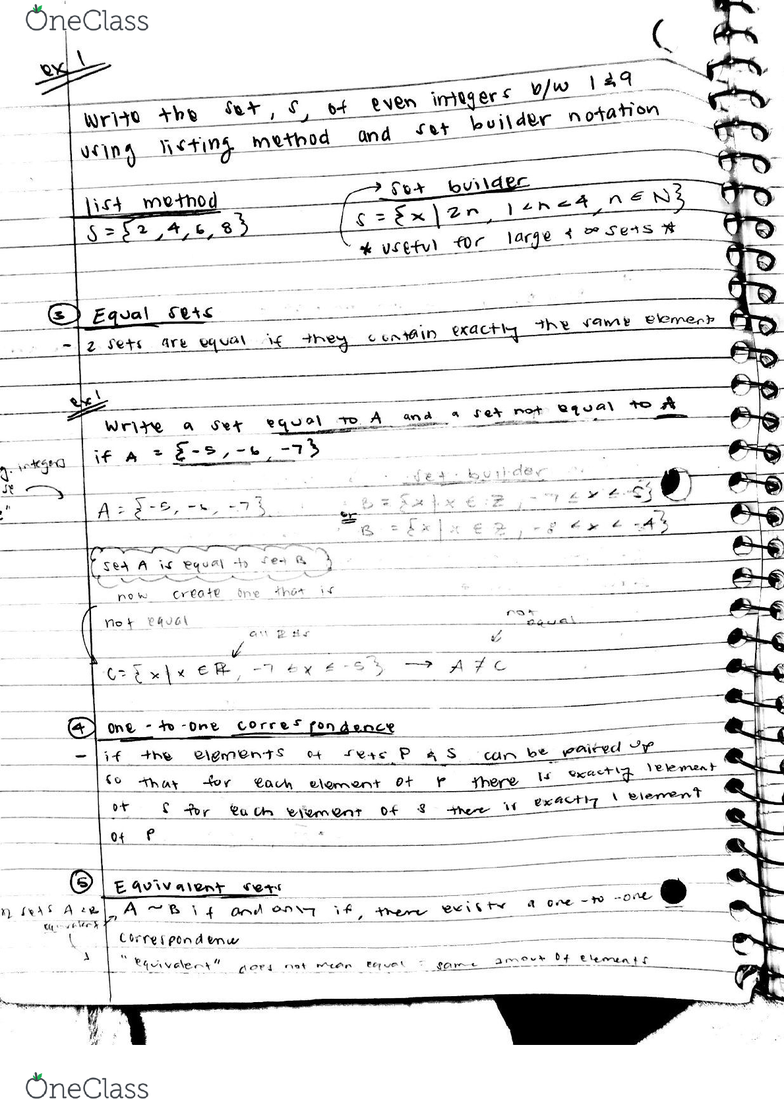 OneClass
ex 1
Write the set, S, of even integers b/w 1 & 9
using listing method and set builder notation
list method
S = {2, 4, 6, 8}
→ set builder
S = {x | 2n, 1 < n < 4, n ∈ N}
* useful for large & ∞ sets *
③ Equal sets
- 2 sets are equal if they contain exactly the same element
ex 1
Write a set equal to A and a set not equal to A
if A = {-5, -6, -7}
integers
set builder
A = {-5, -6, -7}
B = {x | x ∈ Z, -7 ≤ x ≤ -5}
or
B = {x | x ∈ Z, -8 < x < -4}
{set A is equal to set B}
now create one that is
not equal
all
not equal
C = {x | x ∈ R, -7 ≤ x ≤ -5} → A ≠ C
④ one-to-one correspondence
- if the elements of sets P & S can be paired up
so that for each element of P there is exactly 1 element
of S for each element of S there is exactly 1 element
of P
⑤ Equivalent sets
A ~ B if and only if, there exists a one-to-one
correspondence
2 sets A & B
equivalent
"equivalent" does not mean equal = same amout of elements
OneClass